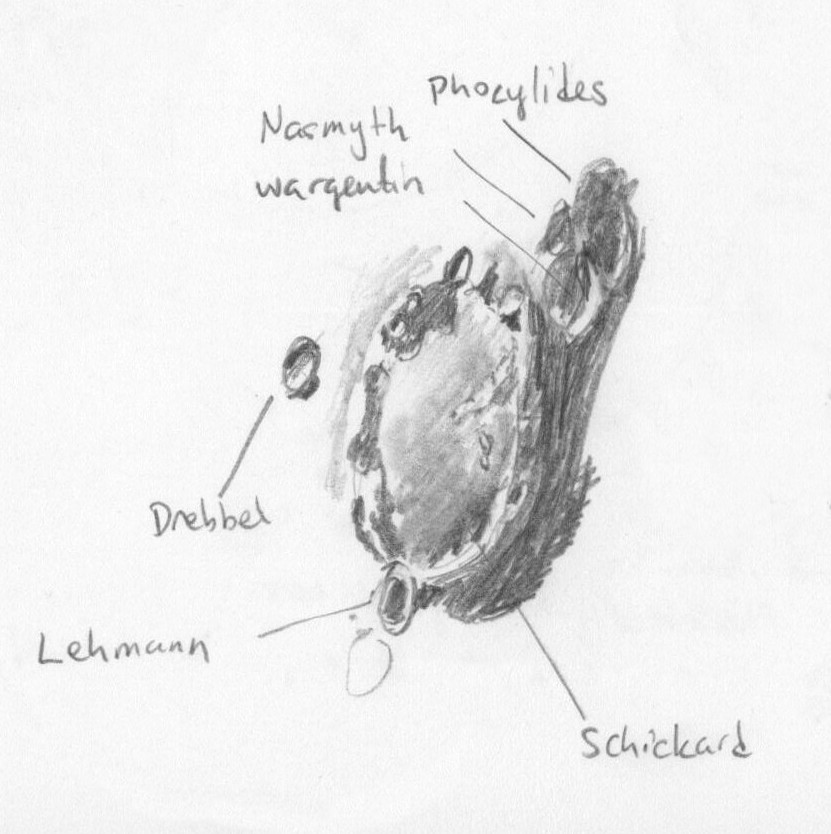 Phocylides
Nasmyth
wargentin
Drebbel
Lehmann
Schickard